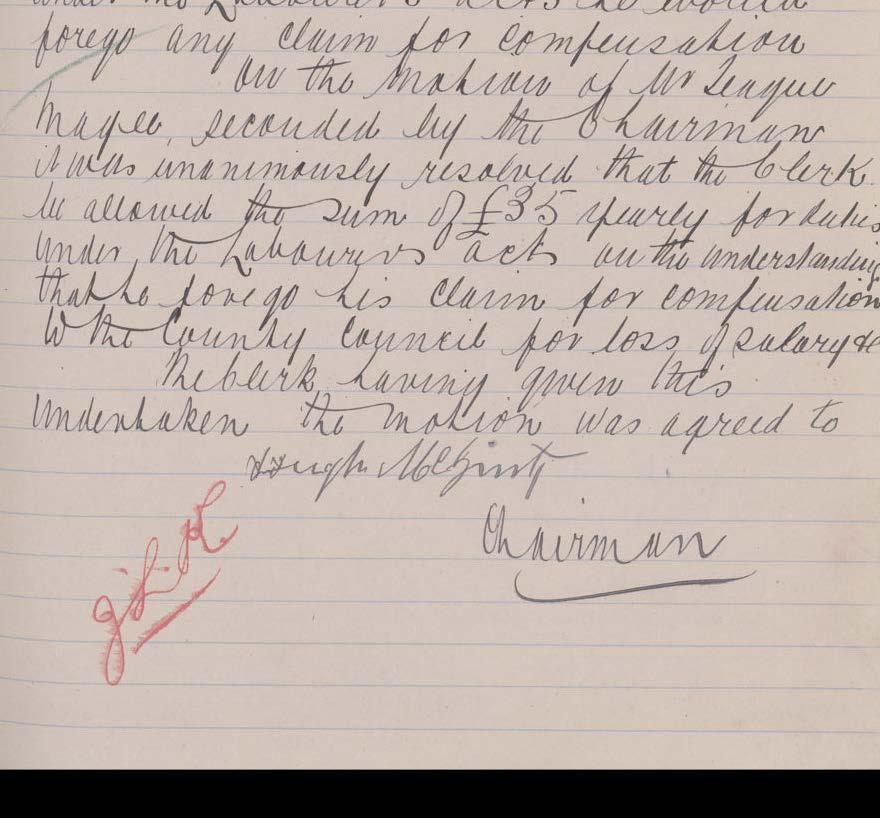 under the Labourers acts he would
forego any claim for compensation
On the motion of Mr Teague
Magee, seconded by the Chairman
it was unanimously resolved that the Clerk
be allowed the sum of £35 yearly for duties
under the Labourers acts on the understanding
that he forego his claim for compensation
to the County Council for loss of salary &c
The Clerk having given this
undertaken the motion was agreed to
Hugh McGinty
Chairman